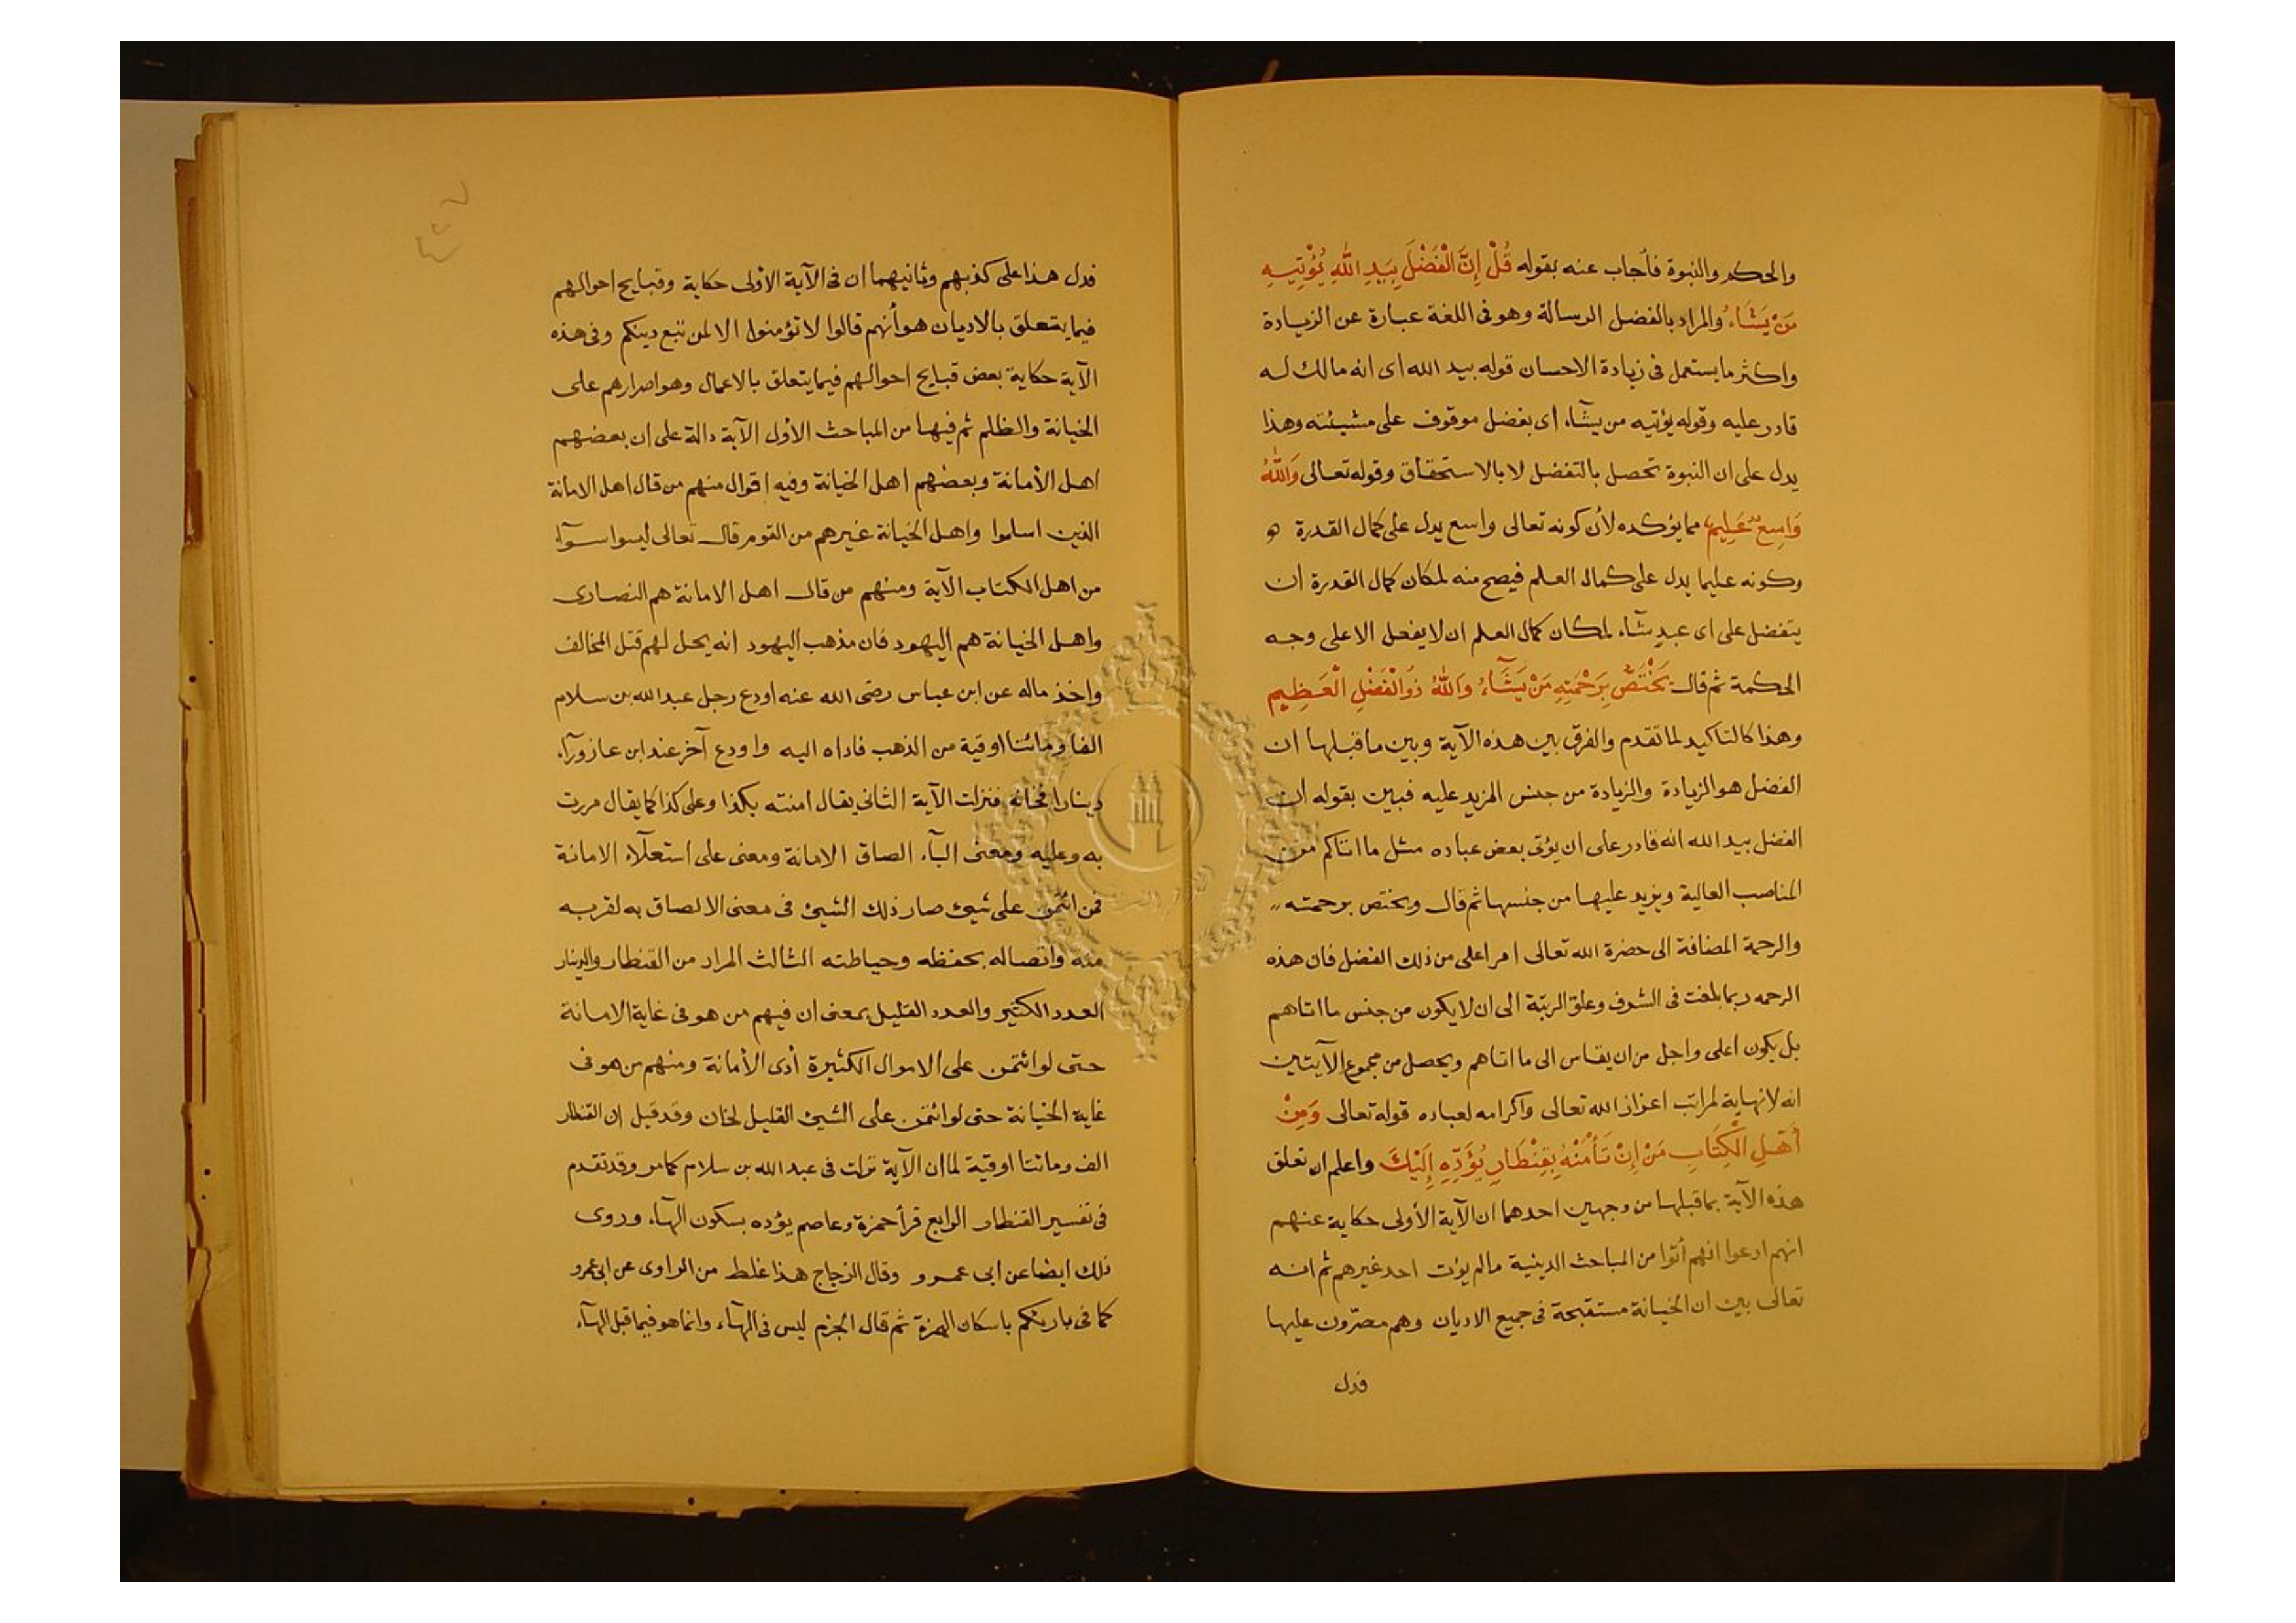 والحكم والنبوة فأجاب عنه بقوله قُلْ إِنَّ الْفَضْلَ بِيَدِ اللهِ يُؤْتِيهِ
مَنْ يَشَاءُ والمراد بالفضل الرسالة وهو فى اللغة عبارة عن الزيادة
واكثر ما يستعمل فى زيادة الاحسان قوله بيد الله اى انه مالك له
قادر عليه وقوله يؤتيه من يشآء اى بفضل موقوف على مشيئته وهذا
يدل على ان النبوة تحصل بالتفضل لا بالاستحقاق وقوله تعالى وَاللهُ
وَاسِعٌ عَلِيمٌ مما يؤكده لأن كونه تعالى واسع يدل على كمال القدرة و
وكونه عليما يدل على كمال العلم فيصح منه لمكان كمال القدرة ان
يتفضل على اى عبد شآء لمكان كمال العلم ان لا يفعل الا على وجه
الحكمة ثم قال يَخْتَصُّ بِرَحْمَتِهِ مَنْ يَشَآءُ وَاللهُ ذُو الْفَضْلِ الْعَظِيمِ
وهذا كالتاكيد لما تقدم والفرق بين هذه الآية وبين ما قبلها ان
الفضل هو الزيادة والزيادة من جنس المزيد عليه فبين بقوله ان
الفضل بيد الله انه قادر على ان يؤتى بعض عباده مثل ما اتاكم من
المناصب العالية ويزيد عليها من جنسها ثم قال ويختص برحمته
والرحمة المضافة الى حضرة الله تعالى امر اعلى من ذلك الفضل فان هذه
الرحمه ربما بلغت فى الشرف وعلق الرتبة الى ان لا يكون من جنس ما اتاهم
بل يكون اعلى واجل من ان يقاس الى ما اتاهم ويحصل من مجموع الآيتين
انه لا نهاية لمراتب اعزاز الله تعالى واكرامه لعباده قوله تعالى وَمِنْ
أَهْلِ الْكِتَابِ مَنْ إِنْ تَأْمَنْهُ بِقِنْطَارٍ يُؤَدِّهِ إِلَيْكَ واعلم ان تعلق
هذه الآية بما قبلها من وجهين احدهما ان الآية الأولى حكاية عنهم
انهم ادعوا انهم أتوا من المباحث الدينية ما لم يؤت احد غيرهم ثم انه
تعالى بين ان الخيانة مستقبحة فى جميع الاديان وهم مصرّون عليها
فدل
فدل هذا على كذبهم وثانيهما ان فى الآية الأولى حكاية وقبايح احوالهم
فيما يتعلق بالاديان هو أنهم قالوا لا تؤمنوا الا لمن تبع دينكم وفى هذه
الآية حكاية بعض قبايح احوالهم فيما يتعلق بالاعمال وهو اصرارهم على
الخيانة والظلم ثم فيها من المباحث الأول الآية دالة على ان بعضهم
اهل الأمانة وبعضهم اهل الخيانة وفيه اقوال منهم من قال اهل الامانة
الذين اسلموا واهل الخيانة غيرهم من القوم قال تعالى ليسوا سوآء
من اهل الكتاب الآية ومنهم من قال اهل الامانة هم النصارى
واهل الخيانة هم اليهود فان مذهب اليهود انه يحل لهم قتل المخالف
واخذ ماله عن ابن عباس رضى الله عنه اودع رجل عبد الله بن سلام
الفا ومائتا اوقية من الذهب فاداه اليه واودع آخر عند ابن عازورآء
دينارا فخانه فنزلت الآية الثانى يقال امنته بكذا وعلى كذا كما يقال مررت
به وعليه ومعنى البآء الصاق الامانة ومعنى على استعلآء الامانة
فمن ائتمن على شيئ صار ذلك الشيئ فى معنى الالصاق به لقربه
منه واتصاله بحفظه وحياطته الثالث المراد من القنطار والدينار
العدد الكثير والعدد القليل بمعنى ان فيهم من هو فى غاية الامانة
حتى لو ائتمن على الاموال الكثيرة أدى الأمانة ومنهم من هو فى
غاية الخيانة حتى لو ائتمن على الشيئ القليل لخان وقد قيل إن القنطار
الف ومائتا اوقية لما ان الآية نزلت فى عبد الله بن سلام كما مر وقد تقدم
فى تفسير القنطار الرابع قرأ حمزة وعاصم يؤده بسكون الهآء وروى
ذلك ايضا عن ابى عمرو وقال الزجاج هذا غلط من الراوى عن ابى عمرو
كما فى بارئكم باسكان الهمزة ثم قال الجزم ليس فى الهآء وانما هو فيما قبل الهآء